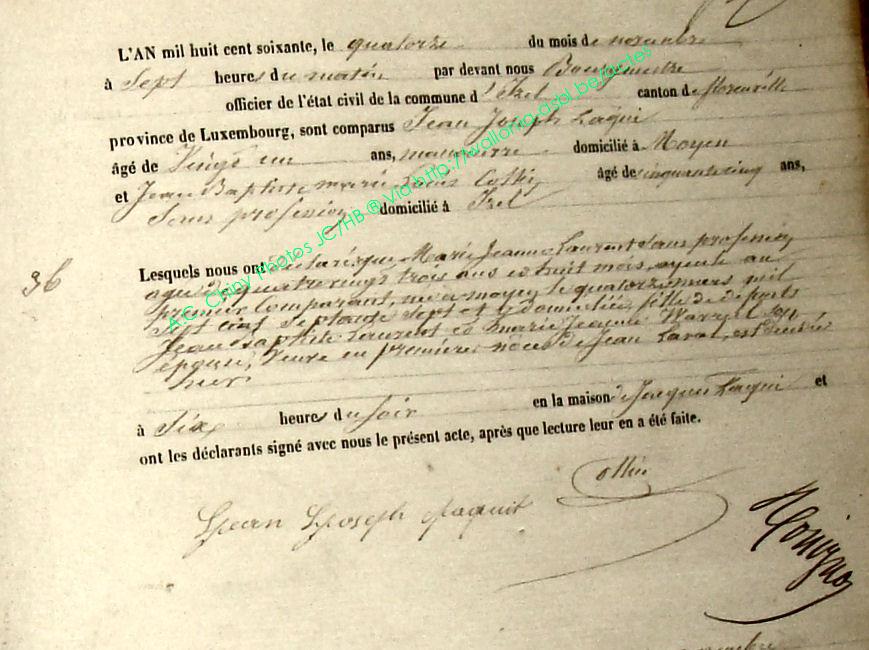 L'AN mil huit cent soixante, le quatorze du mois de novembre
à Sept heures du matin par devant nous Bourgmestre
officier de l'état civil de la commune d'Izel canton de florenville
province de Luxembourg, sont comparus Jean Joseph Laqui
âgé de Vingt un ans, manoeuvre domicilié à Moyen
et Jean Baptiste marie Louis Collin âgé de cinquante cinq ans,
Sans profession domicilié à Izel
36
Lesquels nous ont déclaré que Marie Jeanne Laurent Sans profession
agée de quatre vingt trois ans et huit mois, ayeule au
premier Comparant, née a moyen le quatorze mars mil
Sept cent Septante Sept et y domiciliée, fille de défunts
Jean baptiste Laurent et marie Jeanne son
épouse, Veuve en premières noces de Jean est décédée
hier
à Six heures du soir en la maison de Jacques Laqui et
ont les déclarants signé avec nous le présent acte, après que lecture leur en a été faite.
Collin
Jean Joseph
A.C. Chiny Photos JC/HB ® Via http://wallonia.asbl.be/actes